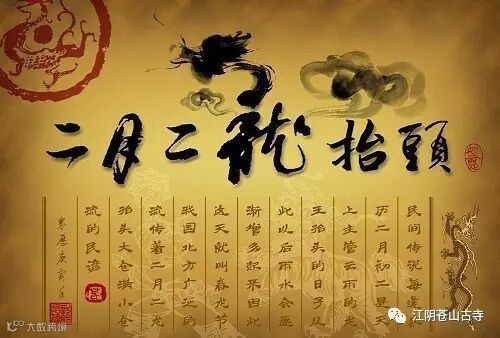 二月二龍抬頭
民间传说每逢农
历二月初二是天
上主管云雨的龙
王抬头的日子从
此以后雨水会逐
渐增多起来因此
这天就叫春龙节
我国北方广泛的
流传着二月二龙
抬头大仓满小仓
流的民谚
大数跨境
江阴苍山古寺